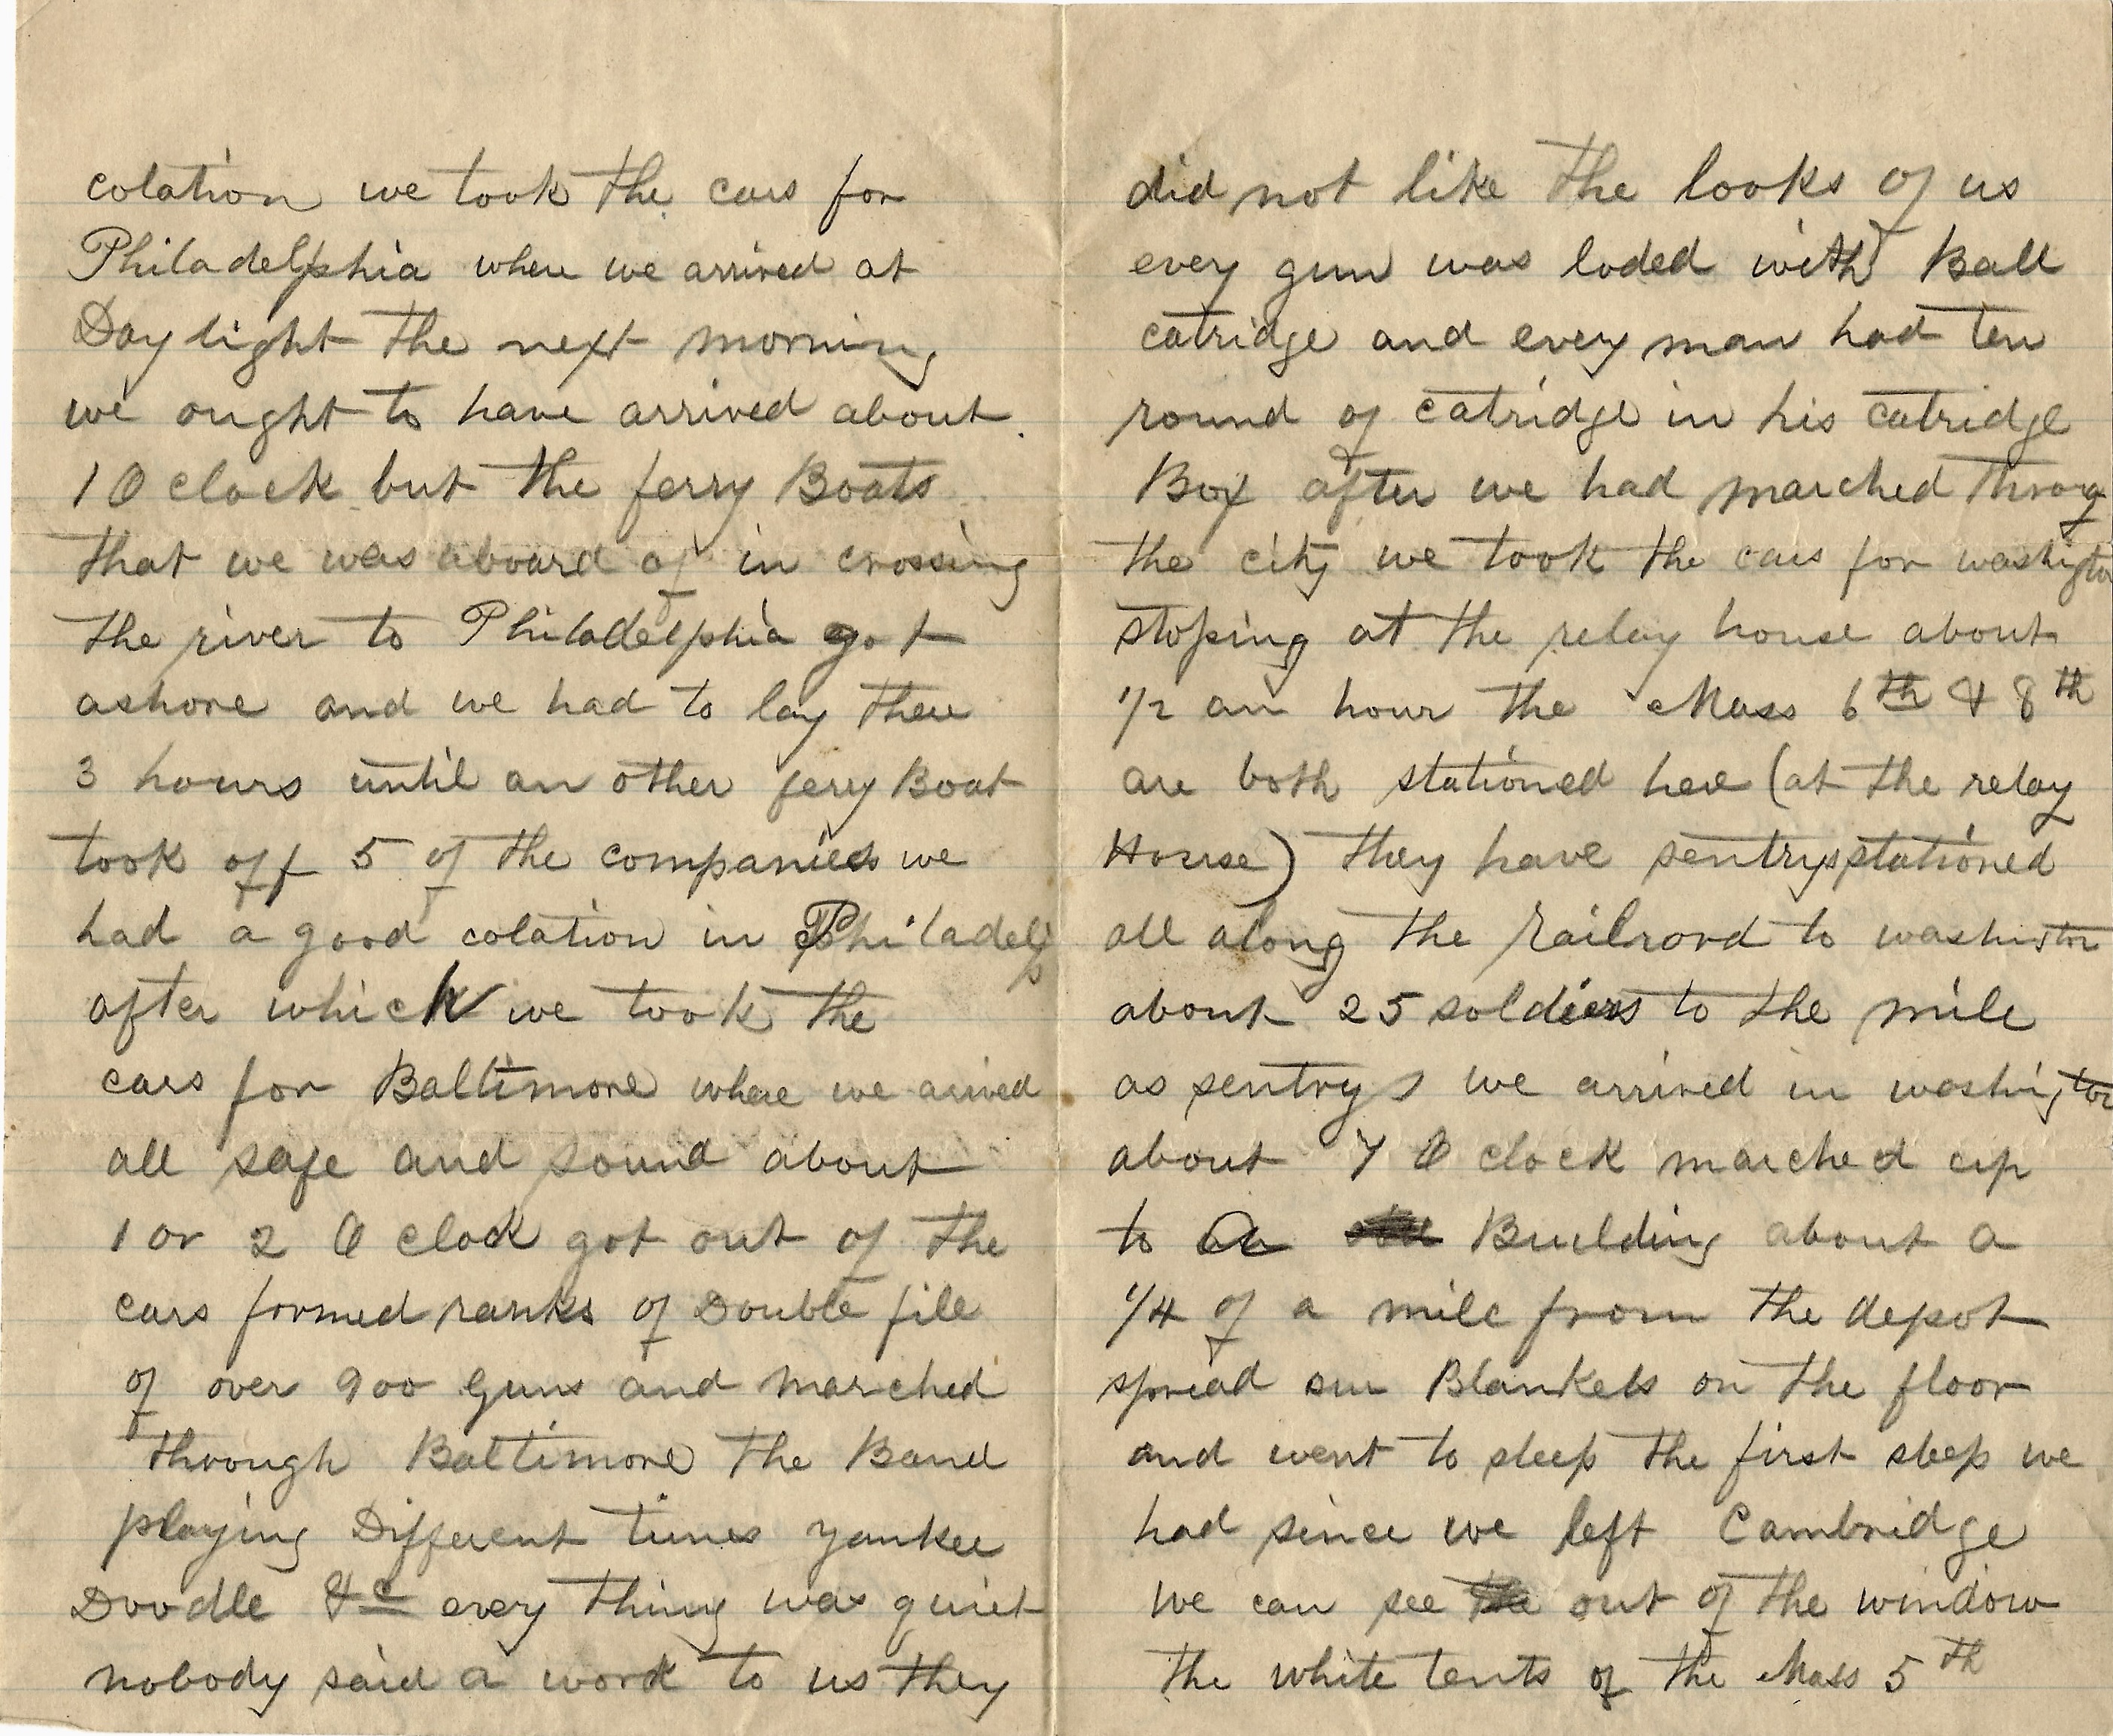 colation we took the cars for
Philadelphia where we arrived at
Day light the next morning
we ought to have arrived about
1 O clock but the ferry Boats
that we was aboard of in crossing
the river to Philadelphia got
ashore and we had to lay there
3 hours until an other ferry Boat
took off 5 of the companies we
had a good colation in Philadelp
after which we took the
cars for Baltimore where we arived
all safe and sound about
1 or 2 O clock got out of the
cars formed ranks of Double file
of over 900 guns and marched
through Baltimore the Band
playing Different tunes yankee
Doodle &c every thing was quiet
nobody said a word to us they
did not like the looks of us
every gun was loded with Ball
catridge and every man had ten
round of catridge in his catridge
Box after we had marched throug
the city we took the cars for washigton
stoping at the relay house about
1/2 an hour the Mass 6th & 8th
are both stationed here (at the relay
House) they have sentrys stationed
all along the railroad to washiton
about 25 soldiers to the mile
as sentrys we arrived in washington
about 7 O clock marched up
to a Building about a
1/4 of a mile from the depot
spread our Blankets on the floor
and went to sleep the first sleep we
had since we left Cambridge
we can see out of the window
the white tents of the Mass 5th